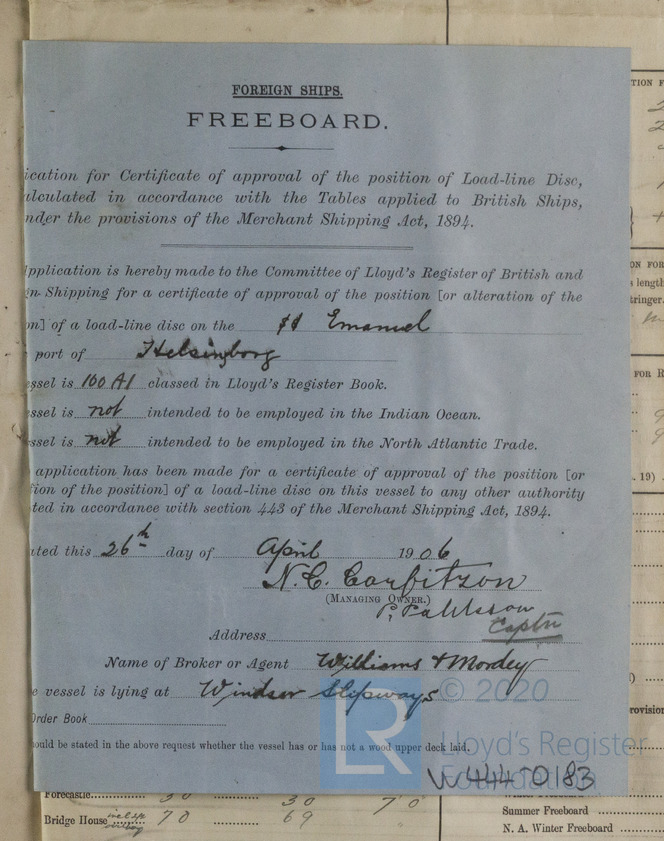 FOREIGN SHIPS.
FREEBOARD.
ication for Certificate of approval of the position of Load-line Disc,
alculated in accordance with the Tables applied to British Ships,
nder the provisions of the Merchant Shipping Act, 1894.
pplication is hereby made to the Committee of Lloyd's Register of British and
n Shipping for a certificate of approval of the position [or alteration of the
n] of a load-line disc on the SS Emanuel
port of Helsingborg
ssel is 100 A1 classed in Lloyd's Register Book.
ssel is not intended to be employed in the Indian Ocean.
ssel is not intended to be employed in the North Atlantic Trade.
application has been made for a certificate of approval of the position [or
tion of the position] of a load-line disc on this vessel to any other authority
ted in accordance with section 443 of the Merchant Shipping Act, 1894.
ated this 26th day of April 1906
N. C. Corfitzon
(MANAGING OWNER.)
P. Pahlsson
Captn
Address
Name of Broker or Agent Williams & Mordey
e vessel is lying at Windsor Slipways
Order Book
ould be stated in the above request whether the vessel has or has not a wood upper deck laid.
© 2020
Lloyd's Register
Foundation
W444-0183
LR
Forecastle 30 30 7' 0"
Bridge House 70 69
Summer Freeboard
N. A. Winter Freeboard
TION F
ON FOR
s length
tringer.
FOR R
. 19)
rovision